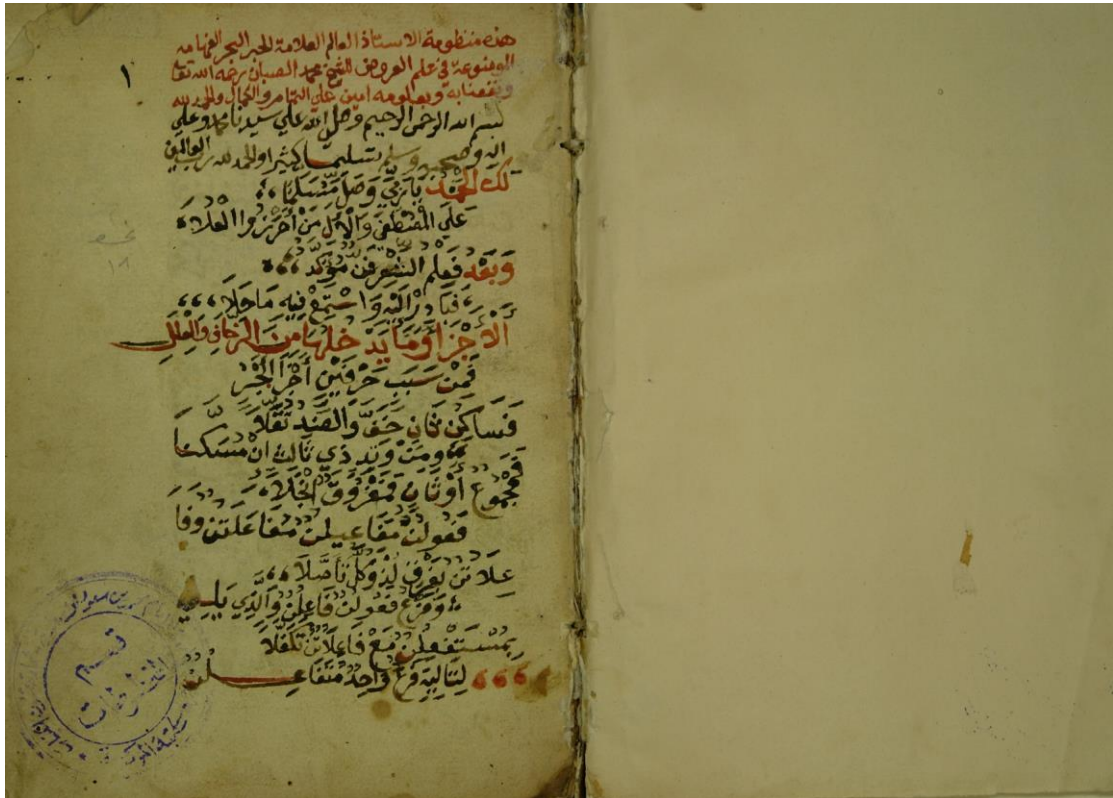 هذه منظومة الاستاذ العالم العلامة الحبر البحر الفهامه
الموضوعة في علم العروض للشيخ محمد الصبان رحمه الله تعا
ونفعنا به وبعلومه امين علي التمام والكمال والحمد لله
بسم الله الرحمن الرحيم وصلى الله علي سيدنا محمد وعلي
اله وصحبه وسلم تسليما كثيرا والحمد لله رب العالمين
لك الحمد يا ربي وصل مسلما
علي المصطفى والال من احرزوا العلا
وبعد فعلم الشعر فن مؤكد
فبادر اليه واستمع فيه ما حلا
الاجزا وما يدخلها من الزحاف والعلل
فمن سبب حرفين أجزا
فساكن ثان خف والضد ثقلا
ومن وتد ذي ثالث ان مسكنا
فمجموع أو ثان فمفروق انجلا
فعولن مفاعيلن مفاعلتن وفا
علاتن بفرق لذ وكل تأصلا
وفرع فعولن فاعلن والذي يلي
بمستفعلن مع فاعلاتن تكفلا
لتاليه فرع واحد متفاعلن
١
١٨
قسم
المخطوطات